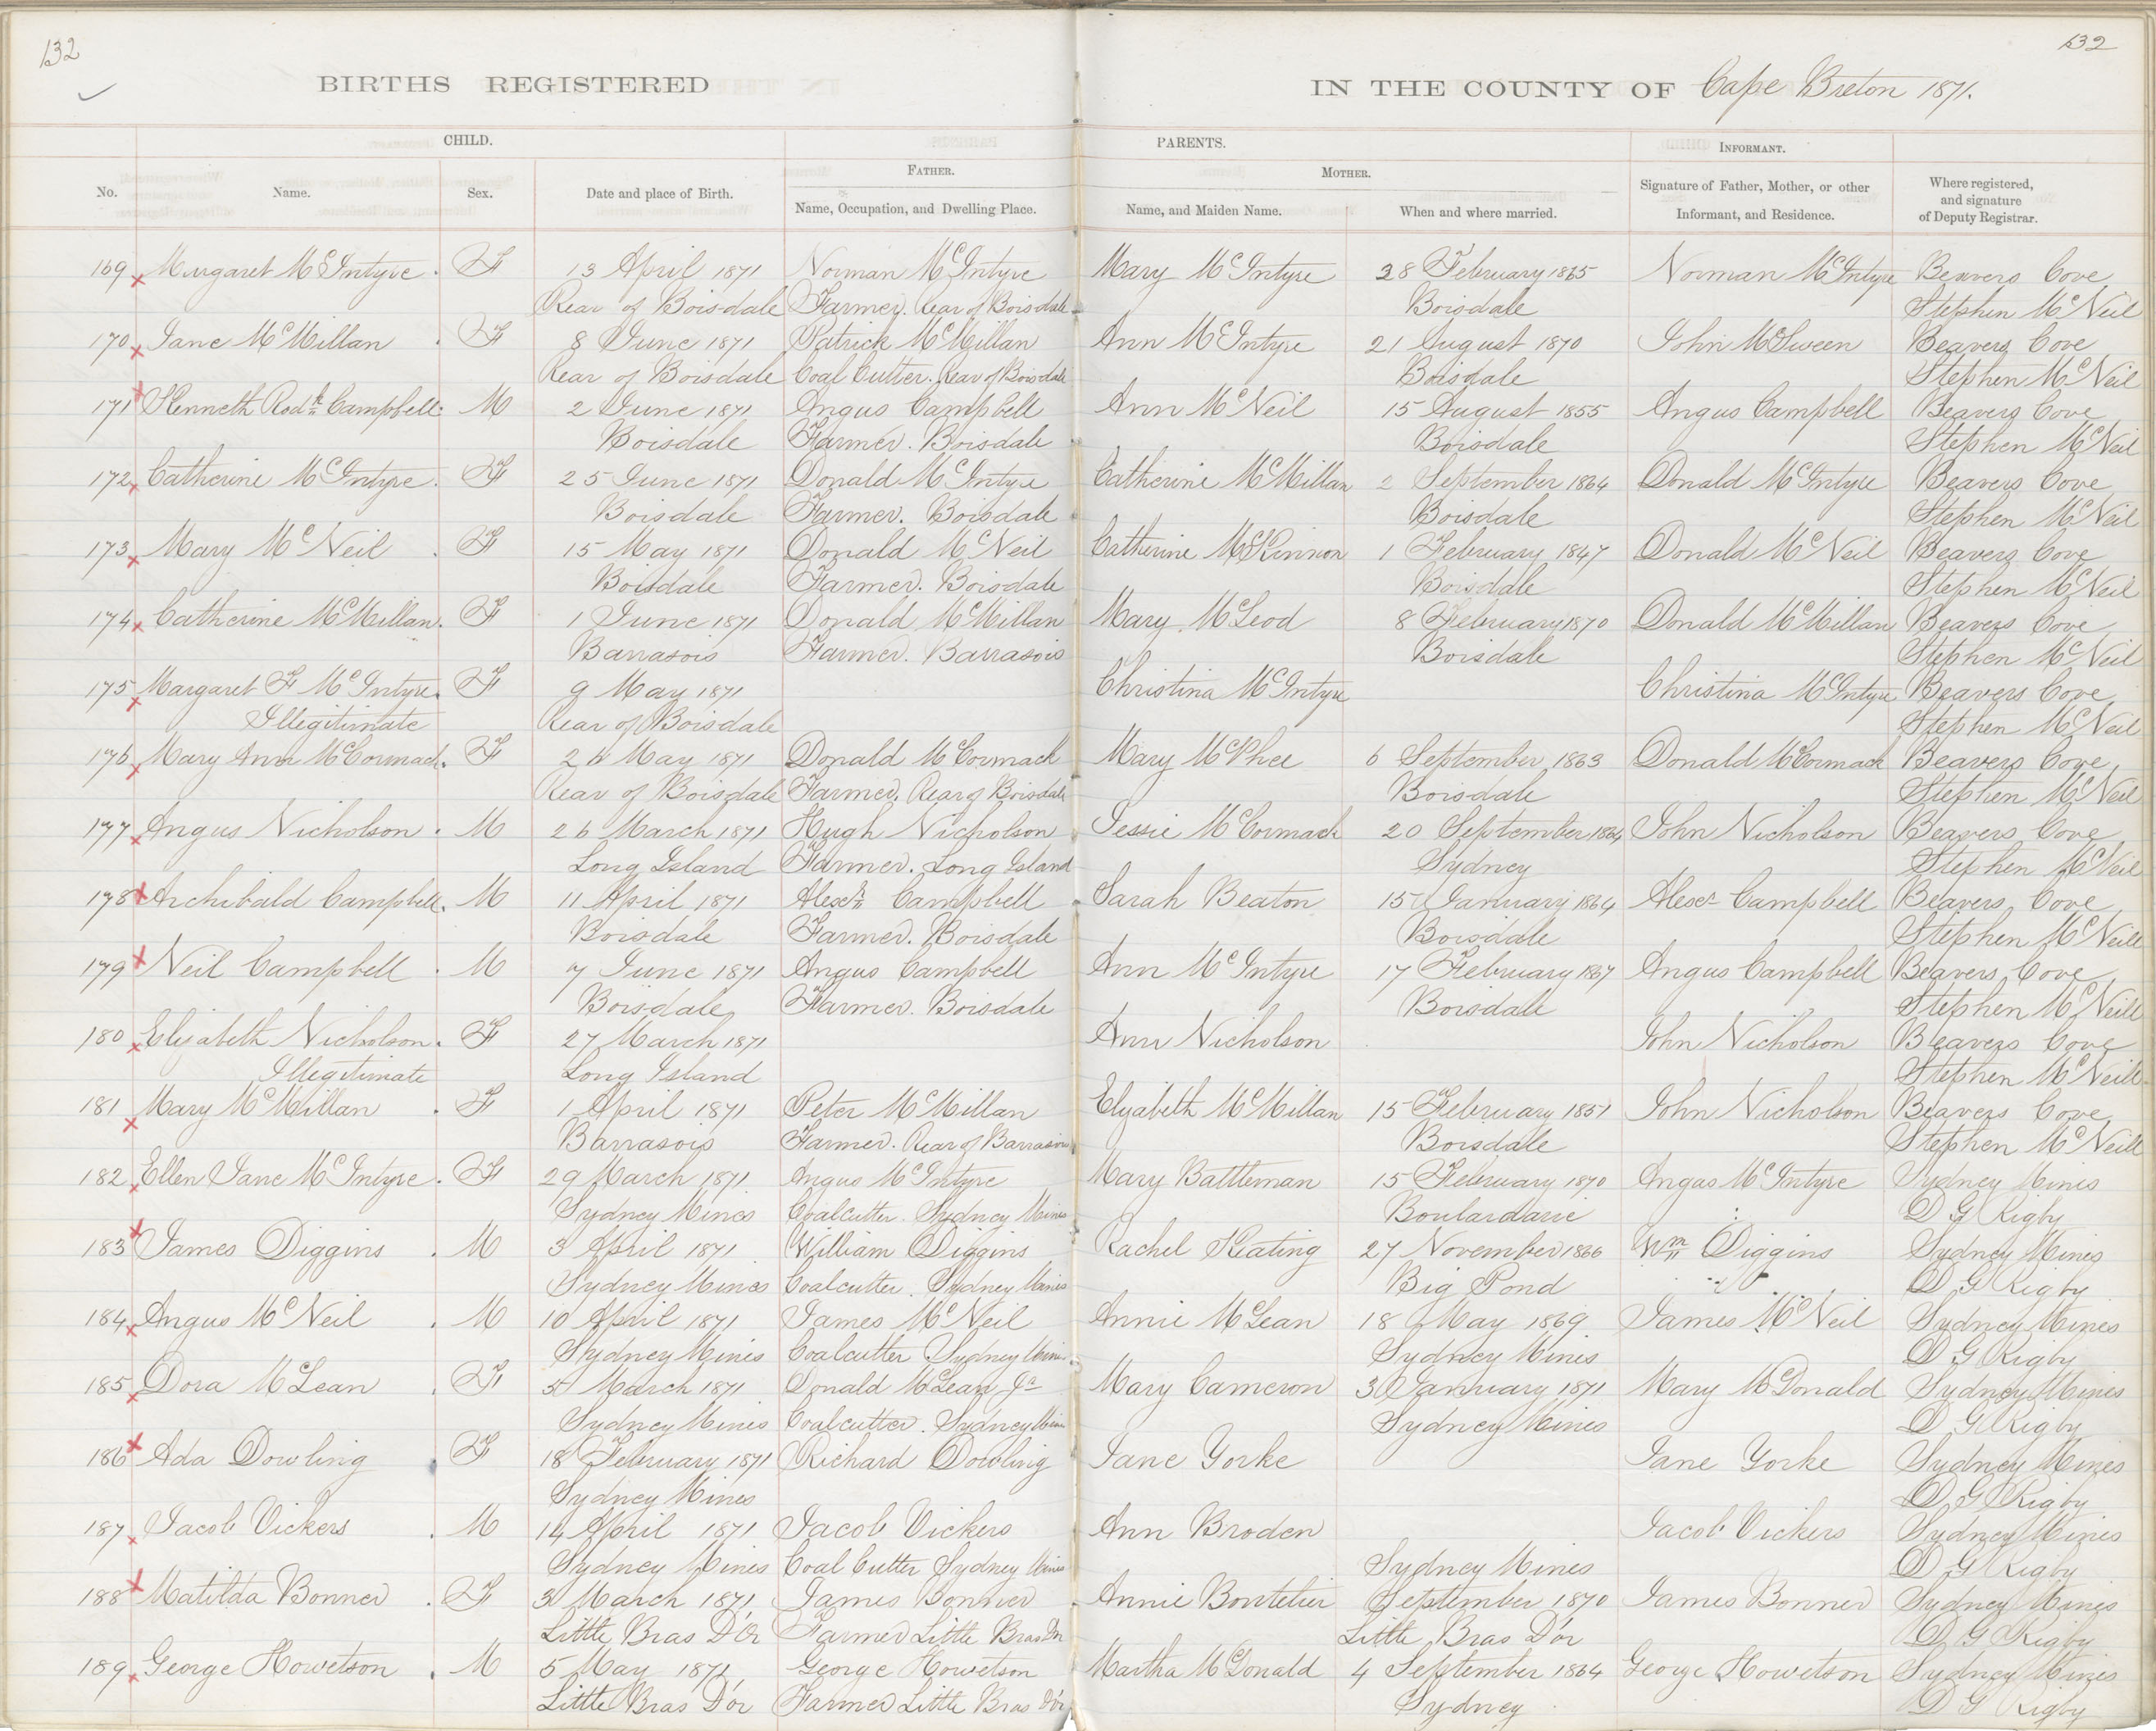 132
132
BIRTHS REGISTERED IN THE COUNTY OF Cape Breton 1871.
CHILD. PARENTS. INFORMANT.
FATHER. MOTHER.
No. Name. Sex. Date and place of Birth. Name, Occupation, and Dwelling Place. Name, and Maiden Name. When and where married. Signature of Father, Mother, or other Informant, and Residence. Where registered, and signature of Deputy Registrar.
169 Margaret McIntyre. F 13 April 1871 Norman McIntyre Mary McIntyre 28 February 1865 Norman McIntyre Beavers Cove
Rear of Boisdale Farmer. Rear of Boisdale Boisdale Stephen McNeil
170 Jane McMillan . F 8 June 1871 Patrick McMillan Ann McIntyre 21 August 1870 John McSween Beavers Cove
Rear of Boisdale Coal Cutter. Rear of Boisdale Boisdale Stephen McNeil
171 Kenneth Rodk Campbell. M 2 June 1871 Angus Campbell Ann McNeil 15 August 1855 Angus Campbell Beavers Cove
Boisdale Farmer. Boisdale Boisdale Stephen McNeil
172 Catherine McIntyre. F 25 June 1871 Donald McIntyre Catherine McMillan 2 September 1864 Donald McIntyre Beavers Cove
Boisdale Farmer. Boisdale Boisdale Stephen McNeil
173 Mary McNeil . F 15 May 1871 Donald McNeil Catherine McKinnon 1 February 1847 Donald McNeil Beavers Cove
Boisdale Farmer. Boisdale Boisdale Stephen McNeil
174 Catherine McMillan. F 1 June 1871 Donald McMillan Mary McLeod 8 February 1870 Donald McMillan Beavers Cove
Barrasois Farmer. Barrasois Boisdale Stephen McNeil
175 Margaret F McIntyre. F 9 May 1871 Christina McIntyre Christina McIntyre Beavers Cove
Illegitimate Rear of Boisdale Stephen McNeil
176 Mary Ann McCormack. F 26 May 1871 Donald McCormack Mary McPhee 6 September 1863 Donald McCormack Beavers Cove
Rear of Boisdale Farmer. Rear of Boisdale Boisdale Stephen McNeil
177 Angus Nicholson . M 26 March 1871 Hugh Nicholson Jessie McCormack 20 September 1864 John Nicholson Beavers Cove
Long Island Farmer. Long Island Sydney Stephen McNeil
178 Archibald Campbell. M 11 April 1871 Alexr Campbell Sarah Beaton 15 January 1864 Alexr Campbell Beavers Cove
Boisdale Farmer. Boisdale Boisdale Stephen McNeill
179 Neil Campbell . M 7 June 1871 Angus Campbell Ann McIntyre 17 February 1867 Angus Campbell Beavers Cove
Boisdale Farmer. Boisdale Boisdale Stephen McNeill
180 Elizabeth Nicholson. F 27 March 1871 Ann Nicholson John Nicholson Beavers Cove
Illegitimate Long Island Stephen McNeill
181 Mary McMillan . F 1 April 1871 Peter McMillan Elizabeth McMillan 15 February 1851 John Nicholson Beavers Cove
Barrasois Farmer. Rear of Barrasois Boisdale Stephen McNeill
182 Ellen Jane McIntyre. F 29 March 1871 Angus McIntyre Mary Battleman 15 February 1870 Angus McIntyre Sydney Mines
Sydney Mines Coalcutter. Sydney Mines Boulardarie D G Rigby
183 James Diggins . M 3 April 1871 William Diggins Rachel Keating 27 November 1866 Wm Diggins Sydney Mines
Sydney Mines Coalcutter. Sydney Mines Big Pond D G Rigby
184 Angus McNeil . M 10 April 1871 James McNeil Annie McLean 18 May 1869 James McNeil Sydney Mines
Sydney Mines Coalcutter Sydney Mines Sydney Mines D G Rigby
185 Dora McLean . F 5 March 1871 Donald McLean Mary Cameron 3 January 1871 Mary McDonald Sydney Mines
Sydney Mines Coalcutter. Sydney Mines Sydney Mines D G Rigby
186 Ada Dowling . F 18 February 1871 Richard Dowling Jane Yorke Jane Yorke Sydney Mines
Sydney Mines D G Rigby
187 Jacob Vickers . M 14 April 1871 Jacob Vickers Ann Broden Jacob Vickers Sydney Mines
Sydney Mines Coal Cutter Sydney Mines Sydney Mines D G Rigby
188 Matilda Bonner . F 3 March 1871 James Bonner Annie Boutelier September 1870 James Bonner Sydney Mines
Little Bras D'Or Farmer Little Bras D'or Little Bras D'or D G Rigby
189 George Howetson . M 5 May 1871 George Howetson Martha McDonald 4 September 1864 George Howetson Sydney Mines
Little Bras D'or Farmer Little Bras D'or Sydney D G Rigby